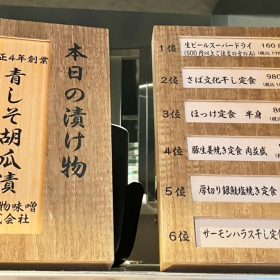 本日の漬け物
正4年創業
青しそ胡瓜漬
物味噌
式会社
1位 生ビールスーパードライ 160
(500円以上ご注文の方のみ)
2位 さば文化干し定食 980
3位 ほっけ定食 半身
4位 豚生姜焼き定食 肉並盛
5位 厚切り銀鮭塩焼き定食
6位 サーモンハラス干し定